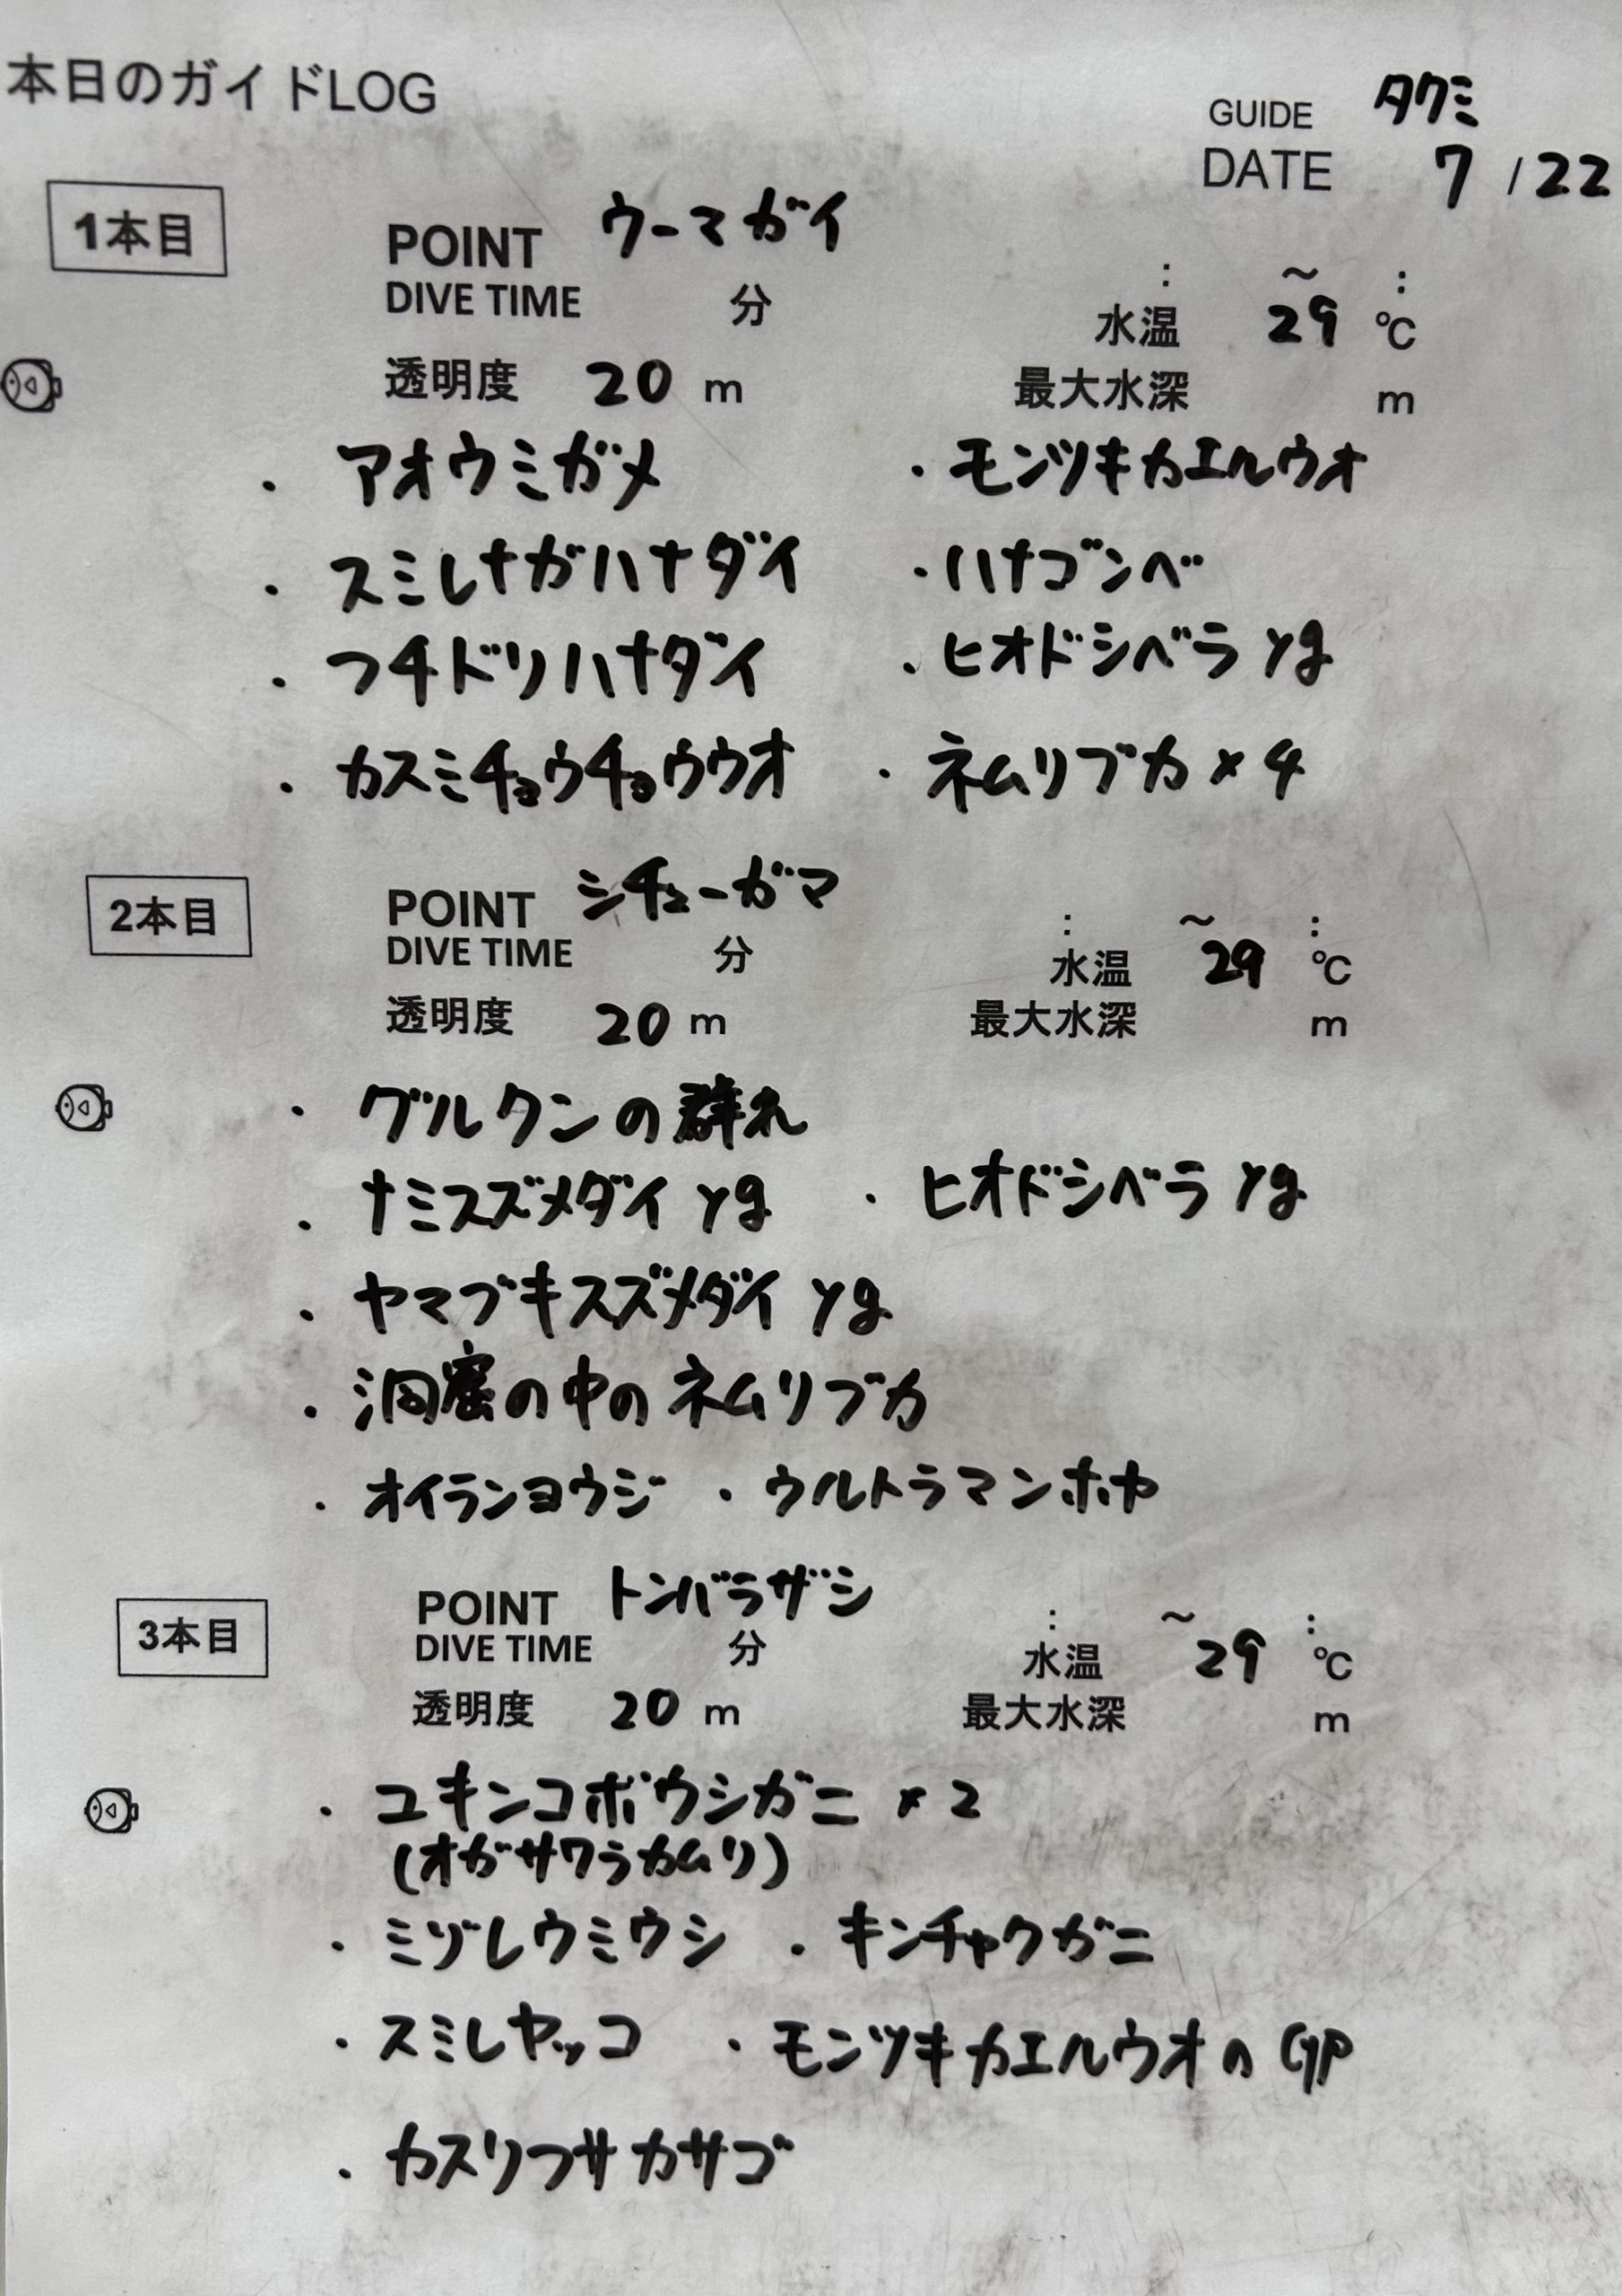 本日のガイドLOG
GUIDE タクミ
DATE 7 / 22
1本目
POINT ウーマガイ
: ～ :
DIVE TIME 分 水温 29 ℃
透明度 20 m 最大水深 m
・アオウミガメ ・モンツキカエルウオ
・スミレナガハナダイ ・ハナゴンベ
・フチドリハナダイ ・ヒオドシベラ yg
・カスミチョウチョウウオ ・ネムリブカ×4
2本目
POINT シチューガマ
: ～ :
DIVE TIME 分 水温 29 ℃
透明度 20 m 最大水深 m
・グルクンの群れ
・ナミスズメダイ yg ・ヒオドシベラ yg
・ヤマブキスズメダイ yg
・洞窟の中のネムリブカ
・オイランヨウジ ・ウルトラマンホヤ
3本目
POINT トンバラザシ
: ～ :
DIVE TIME 分 水温 29 ℃
透明度 20 m 最大水深 m
・ユキンコボウシガニ ×2
(オガサワラカムリ)
・ミゾレウミウシ ・キンチャクガニ
・スミレヤッコ ・モンツキカエルウオのGP
・カスリフサカサゴ